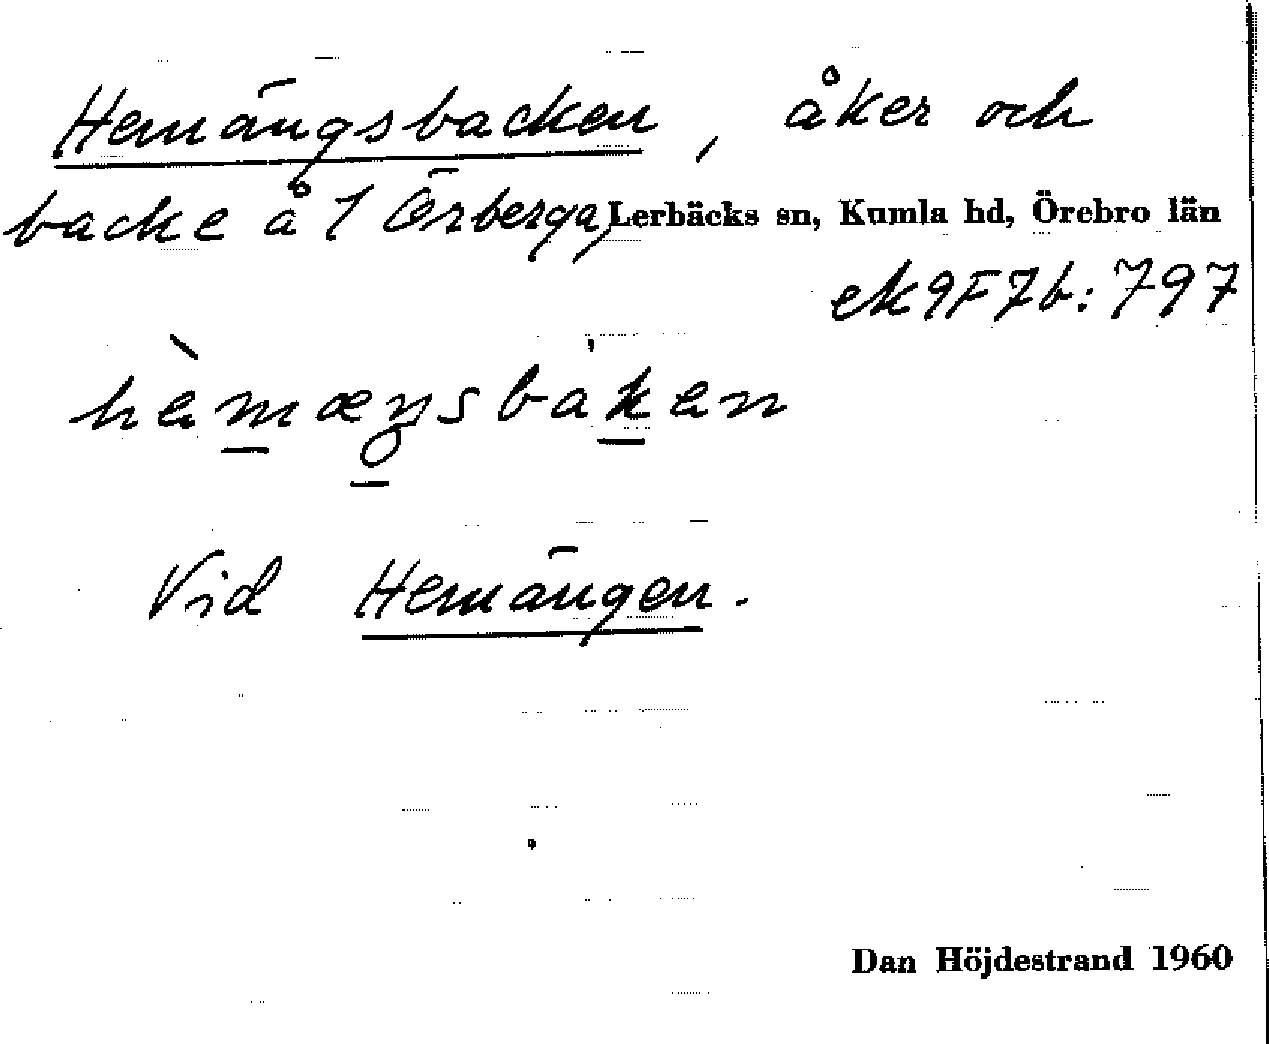 Hemängsbacken, åker och
backe å 1 Örberga, Lerbäcks sn, Kumla hd, Örebro län
ek 9F7b:797
hèmæŋsbaken
Vid Hemängen.
Dan Höjdestrand 1960